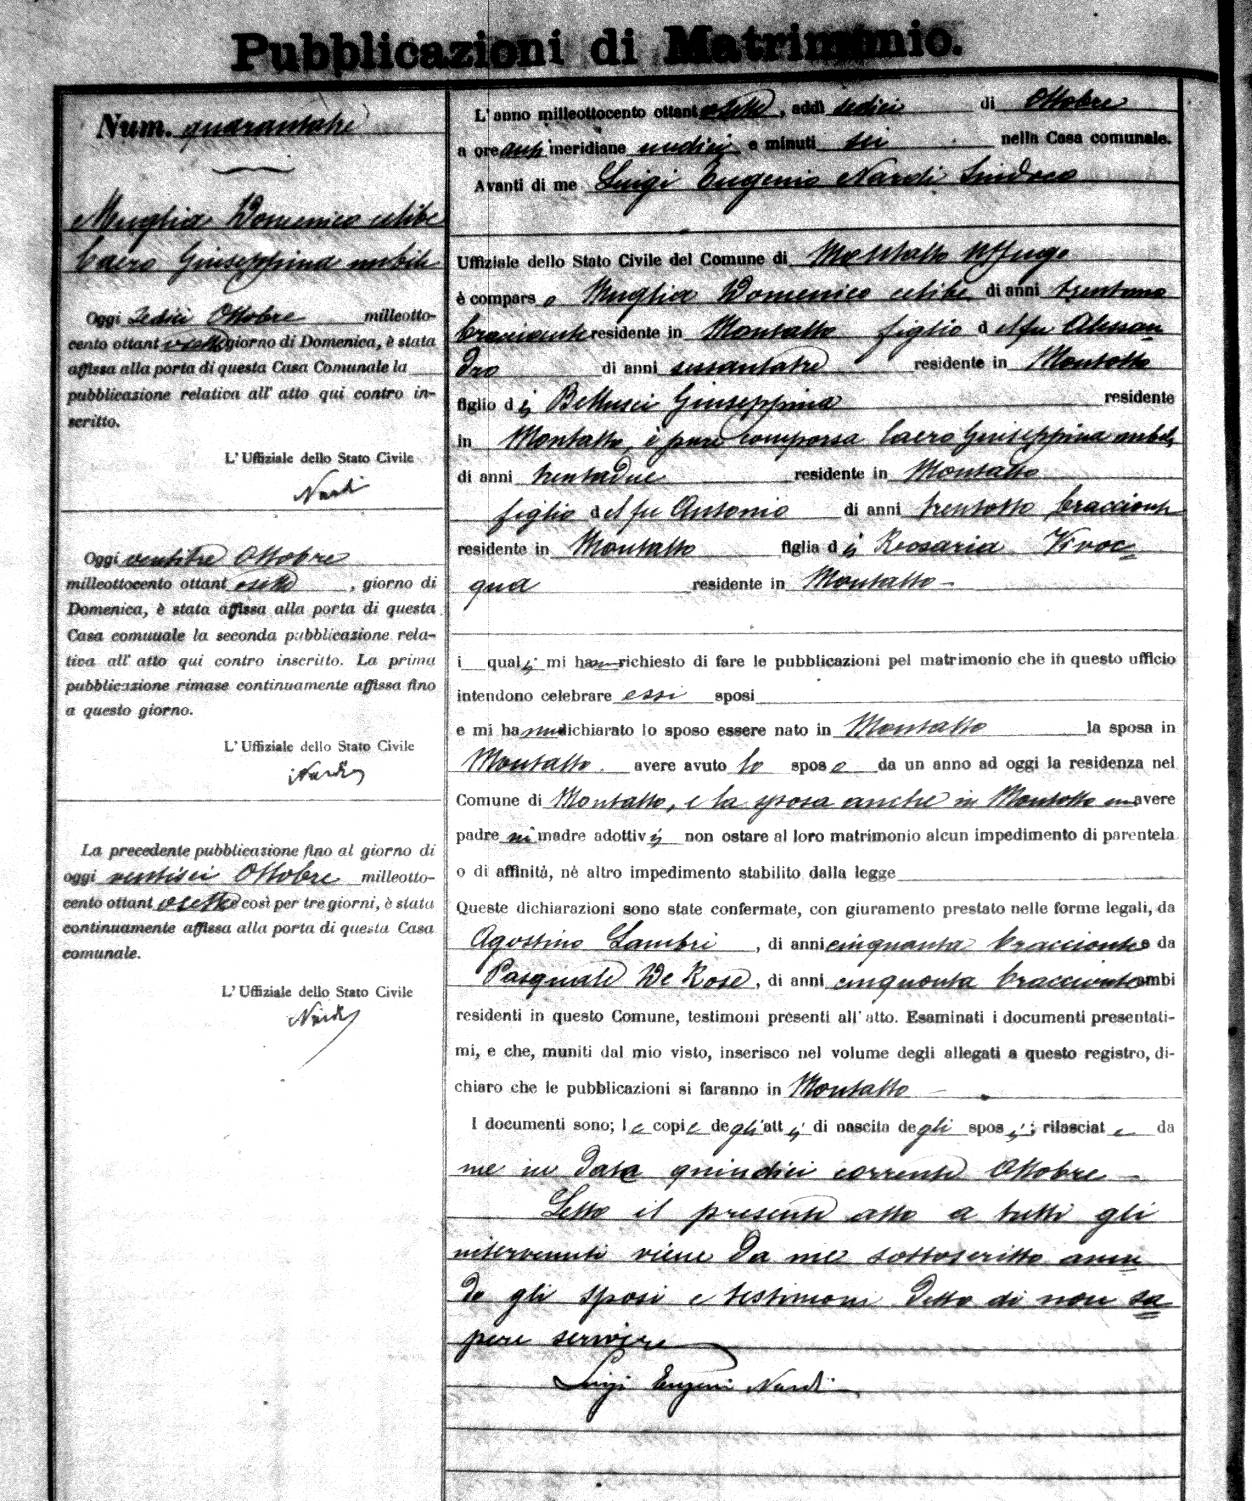 Pubblicazioni di Matrimonio.
Num. quarantatrè
Muglia Domenico celibe
Caero Giuseppina nubile
Oggi Sedici Ottobre milleotto-
cento ottantasette giorno di Domenica, è stata
affissa alla porta di questa Casa Comunale la
pubblicazione relativa all' atto qui contro in-
scritto.
L' Uffiziale dello Stato Civile
Nardi
Oggi ventitre Ottobre
milleottocento ottantasette, giorno di
Domenica, è stata affissa alla porta di questa
Casa comunale la seconda pubblicazione rela-
tiva all' atto qui contro inscritto. La prima
pubblicazione rimase continuamente affissa fino
a questo giorno.
L' Uffiziale dello Stato Civile
Nardi
La precedente pubblicazione fino al giorno di
oggi ventisei Ottobre milleotto-
cento ottantasette così per tre giorni, è stata
continuamente affissa alla porta di questa Casa
comunale.
L' Uffiziale dello Stato Civile
Nardi
L'anno milleottocento ottantasette, addì sedici di Ottobre
a ore anti meridiane undici e minuti sei nella Casa comunale.
Avanti di me Luigi Eugenio Nardi Sindaco
Uffiziale dello Stato Civile del Comune di Montalto Uffugo
è comparso Muglia Domenico celibe di anni trentuno
bracciante residente in Montalto figlio del fu Alessan
dro di anni sessantatre residente in Montalto
figlio di Bellusci Giuseppina residente
in Montalto, è pure comparsa Caero Giuseppina nubile
di anni trentadue residente in Montalto
figlia del fu Antonio di anni trentotto bracciante
residente in Montalto figlia di Rosaria Vivac
qua residente in Montalto
i quali mi hanno richiesto di fare le pubblicazioni pel matrimonio che in questo ufficio
intendono celebrare essi sposi
e mi hanno dichiarato lo sposo essere nato in Montalto la sposa in
Montalto. avere avuto lo sposo da un anno ad oggi la residenza nel
Comune di Montalto, e la sposa anche in Montalto non avere
padre nè madre adottivi non ostare al loro matrimonio alcun impedimento di parentela
o di affinità, nè altro impedimento stabilito dalla legge
Queste dichiarazioni sono state confermate, con giuramento prestato nelle forme legali, da
Agostino Lambri, di anni cinquanta bracciante e da
Pasquale De Rose, di anni cinquanta bracciante ambi
residenti in questo Comune, testimoni presenti all' atto. Esaminati i documenti presentati-
mi, e che, muniti dal mio visto, inserisco nel volume degli allegati a questo registro, di-
chiaro che le pubblicazioni si faranno in Montalto
I documenti sono; le copie degli atti di nascita degli sposi; rilasciate da
me in data quindici corrente Ottobre
Letto il presente atto a tutti gli
intervenuti viene da me sottoscritto aven
do gli sposi e testimoni detto di non sa
pere scrivere
Luigi Eugenio Nardi